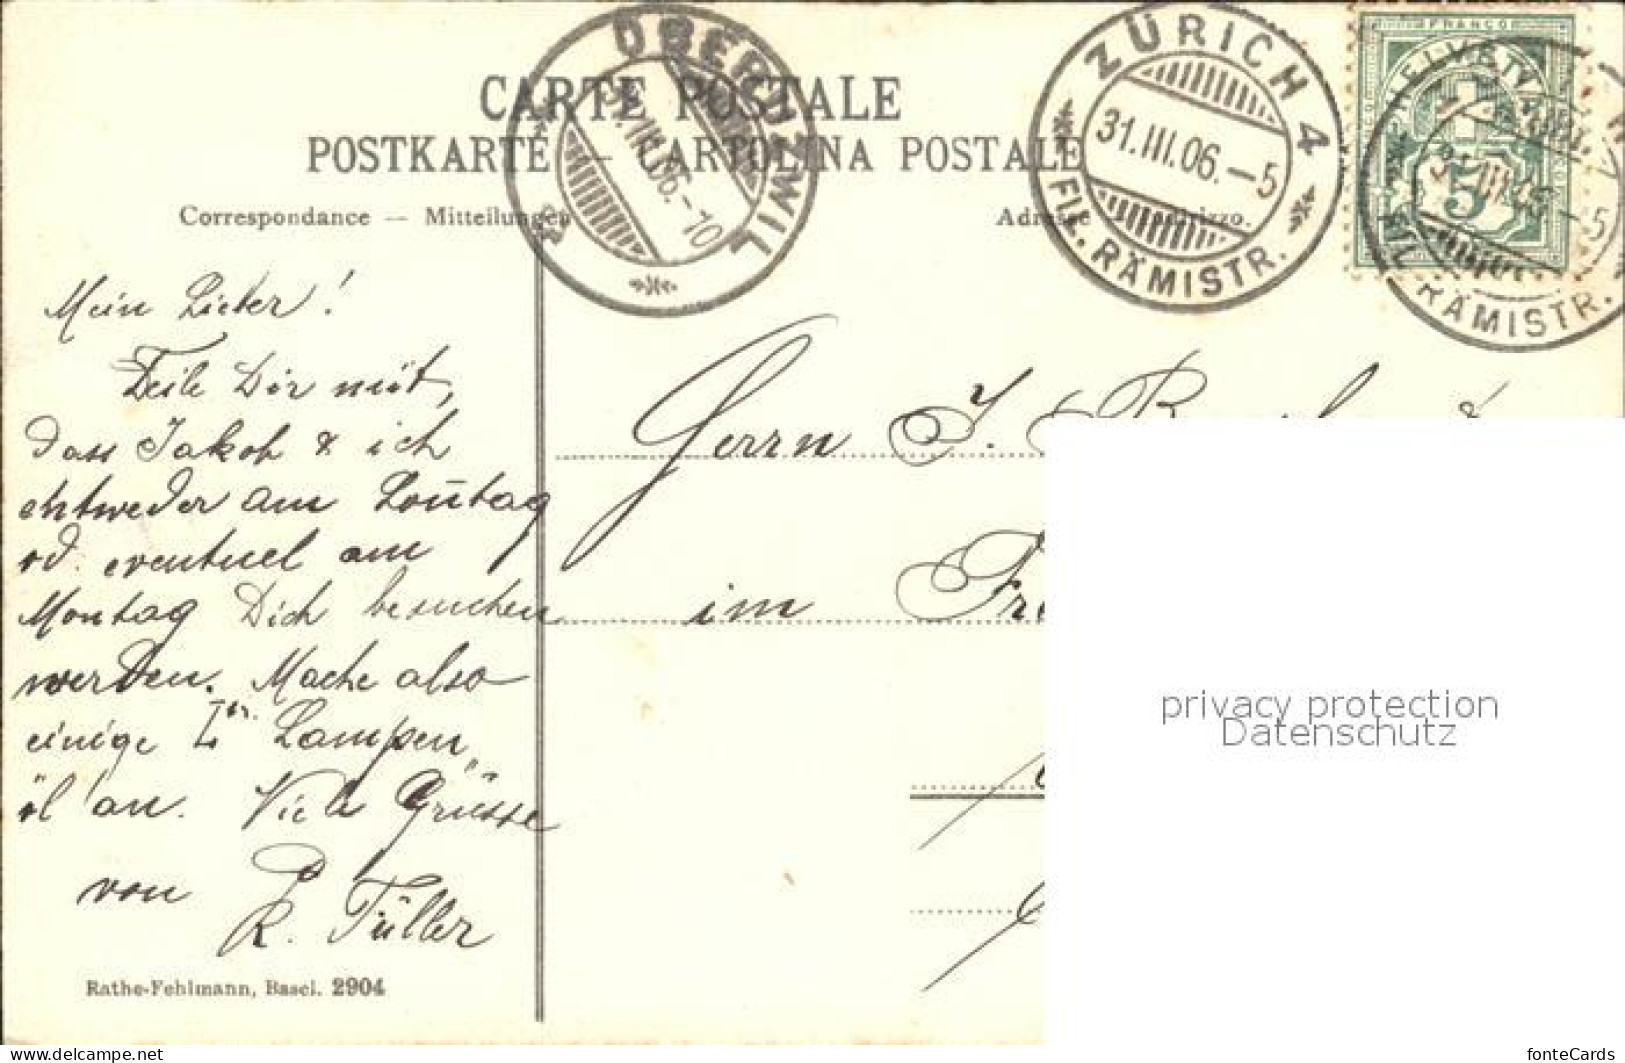 CARTE POSTALE
POSTKARTE — CARTOLINA POSTALE
Correspondance — Mitteilungen
Adresse — Indirizzo.
OBERUZWIL
31.III.06.-10
ZÜRICH 4
31.III.06.-5
FIL. RÄMISTR.
FRANCO
HELVETIA
5
FIL. RÄMISTR.
Mein Lieber!
Teile Dir mit,
dass Jakob & ich
entweder am Sonntag
od. eventuel am
Montag Dich besuchen
werden. Mache also
einige Ltr. Lampen
öl an. Viele Grüsse
von
R. Füller
Rathe-Fehlmann, Basel. 2904
Herrn J.
im
privacy protection
Datenschutz
https://www.delcampe.net
fonteCards